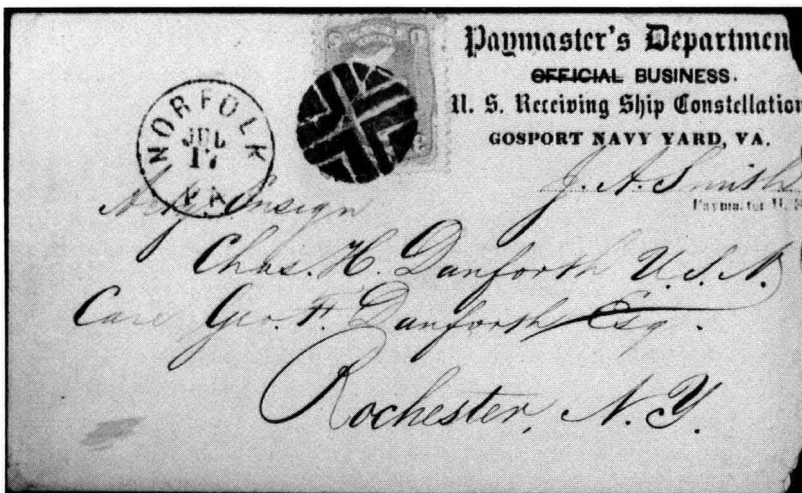 Paymaster's Departmen
OFFICIAL BUSINESS.
U. S. Receiving Ship Constellation
GOSPORT NAVY YARD, VA.
J. A. Smith
Paymaster U. S
NORFOLK
JUL
17
VA
Actg. Ensign
Chas. H. Danforth U.S.N.
Care Geo. F. Danforth Esq.
Rochester, N.Y.